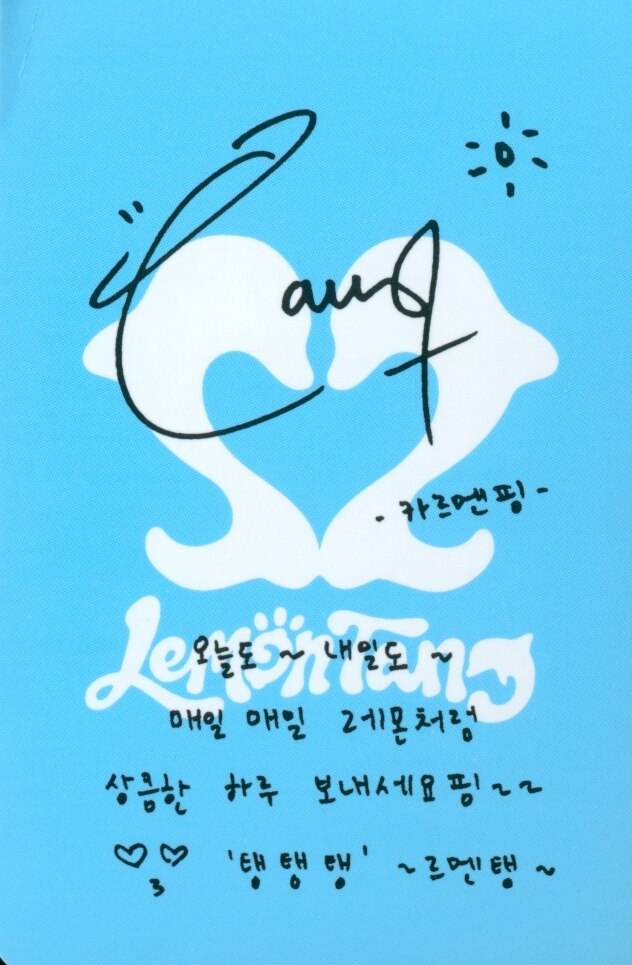 - 카르멘핑 -
Lemon Tang
오늘도 ~ 내일도 ~
매일 매일 레몬처럼
상큼한 하루 보내세요핑~~
♡♡
3 '탱탱탱' ~르멘탱~